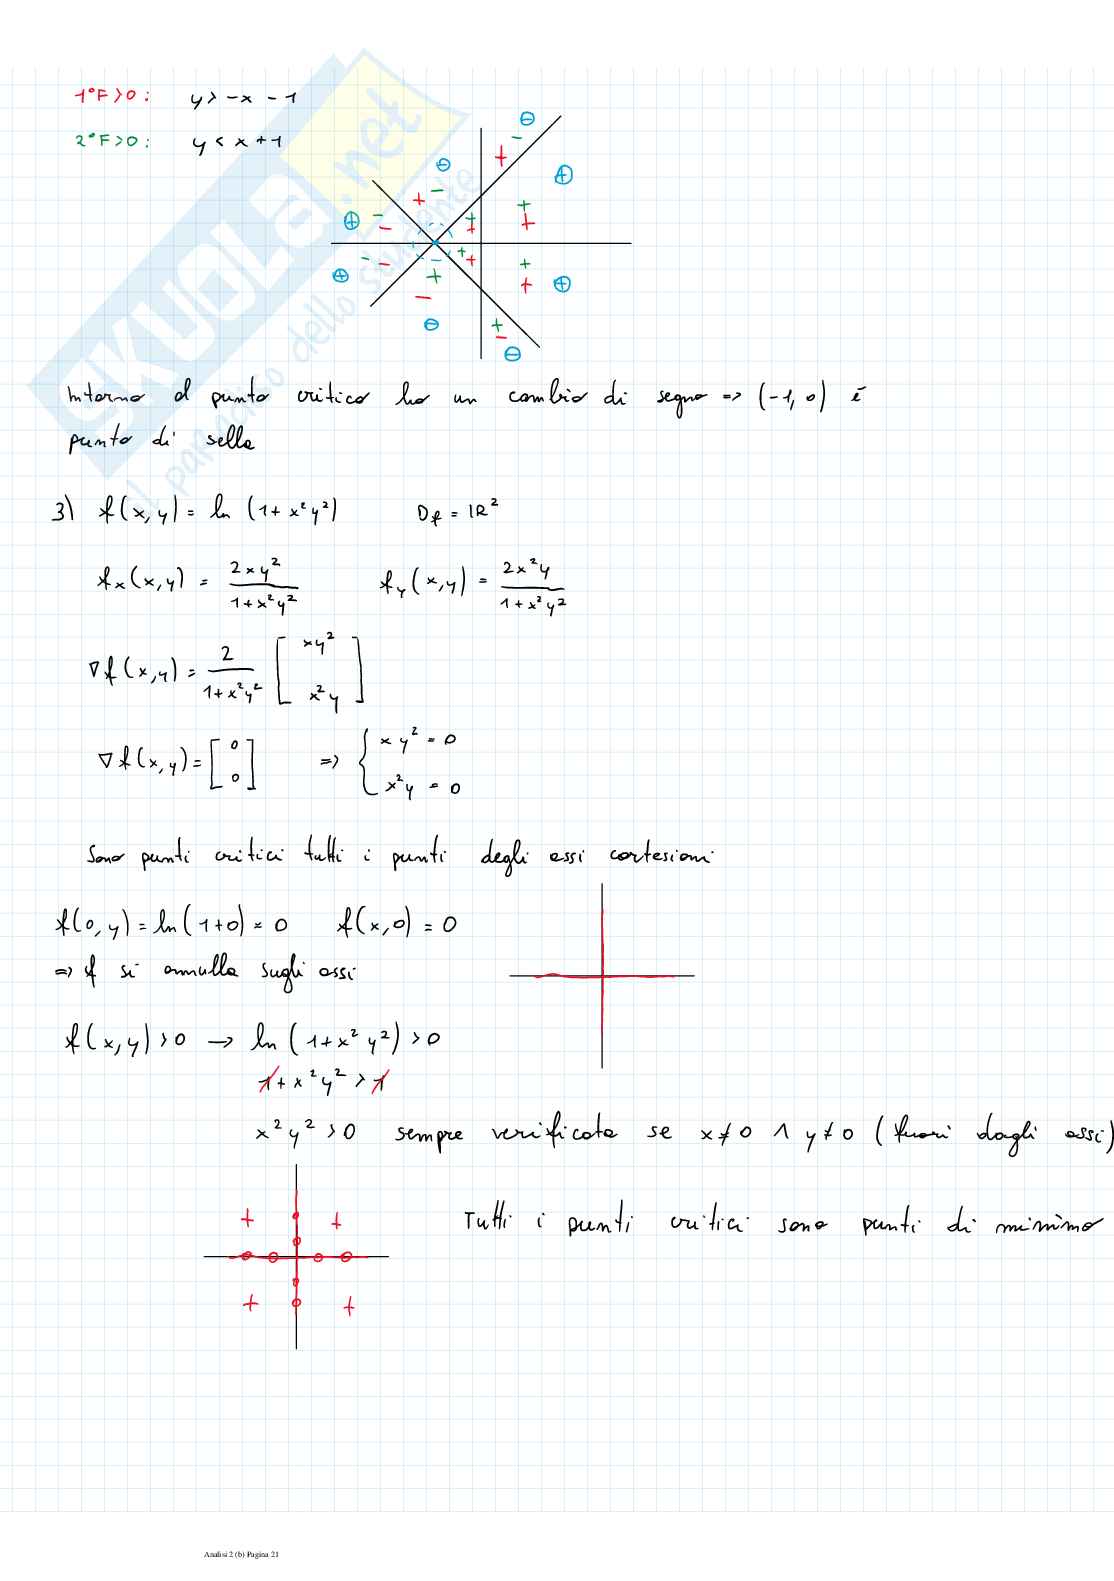 1°F>0: y > -x - 1
2°F>0: y < x + 1
Intorno al punto critico ho un cambio di segno => (-1, 0) è
punto di sella
3) f(x, y) = ln (1 + x² y²) Df = IR²
fx (x, y) = 2xy² / 1 + x² y² fy (x, y) = 2x² y / 1 + x² y²
∇f(x, y) = 2 / 1 + x² y² [ xy² x² y ]
∇f(x, y) = [ 0 0 ] => { x y² = 0 x² y = 0
Sono punti critici tutti i punti degli assi cartesiani
f(0, y) = ln(1+0) = 0 f(x, 0) = 0
=> f si annulla sugli assi
f(x, y) > 0 → ln (1 + x² y²) > 0
1 + x² y² > 1
x² y² > 0 sempre verificata se x ≠ 0 ∧ y ≠ 0 (fuori dagli assi)
Tutti i punti critici sono punti di minimo
SKUOLA.net
il paradiso dello studente
Analisi 2 (b) Pagina 21